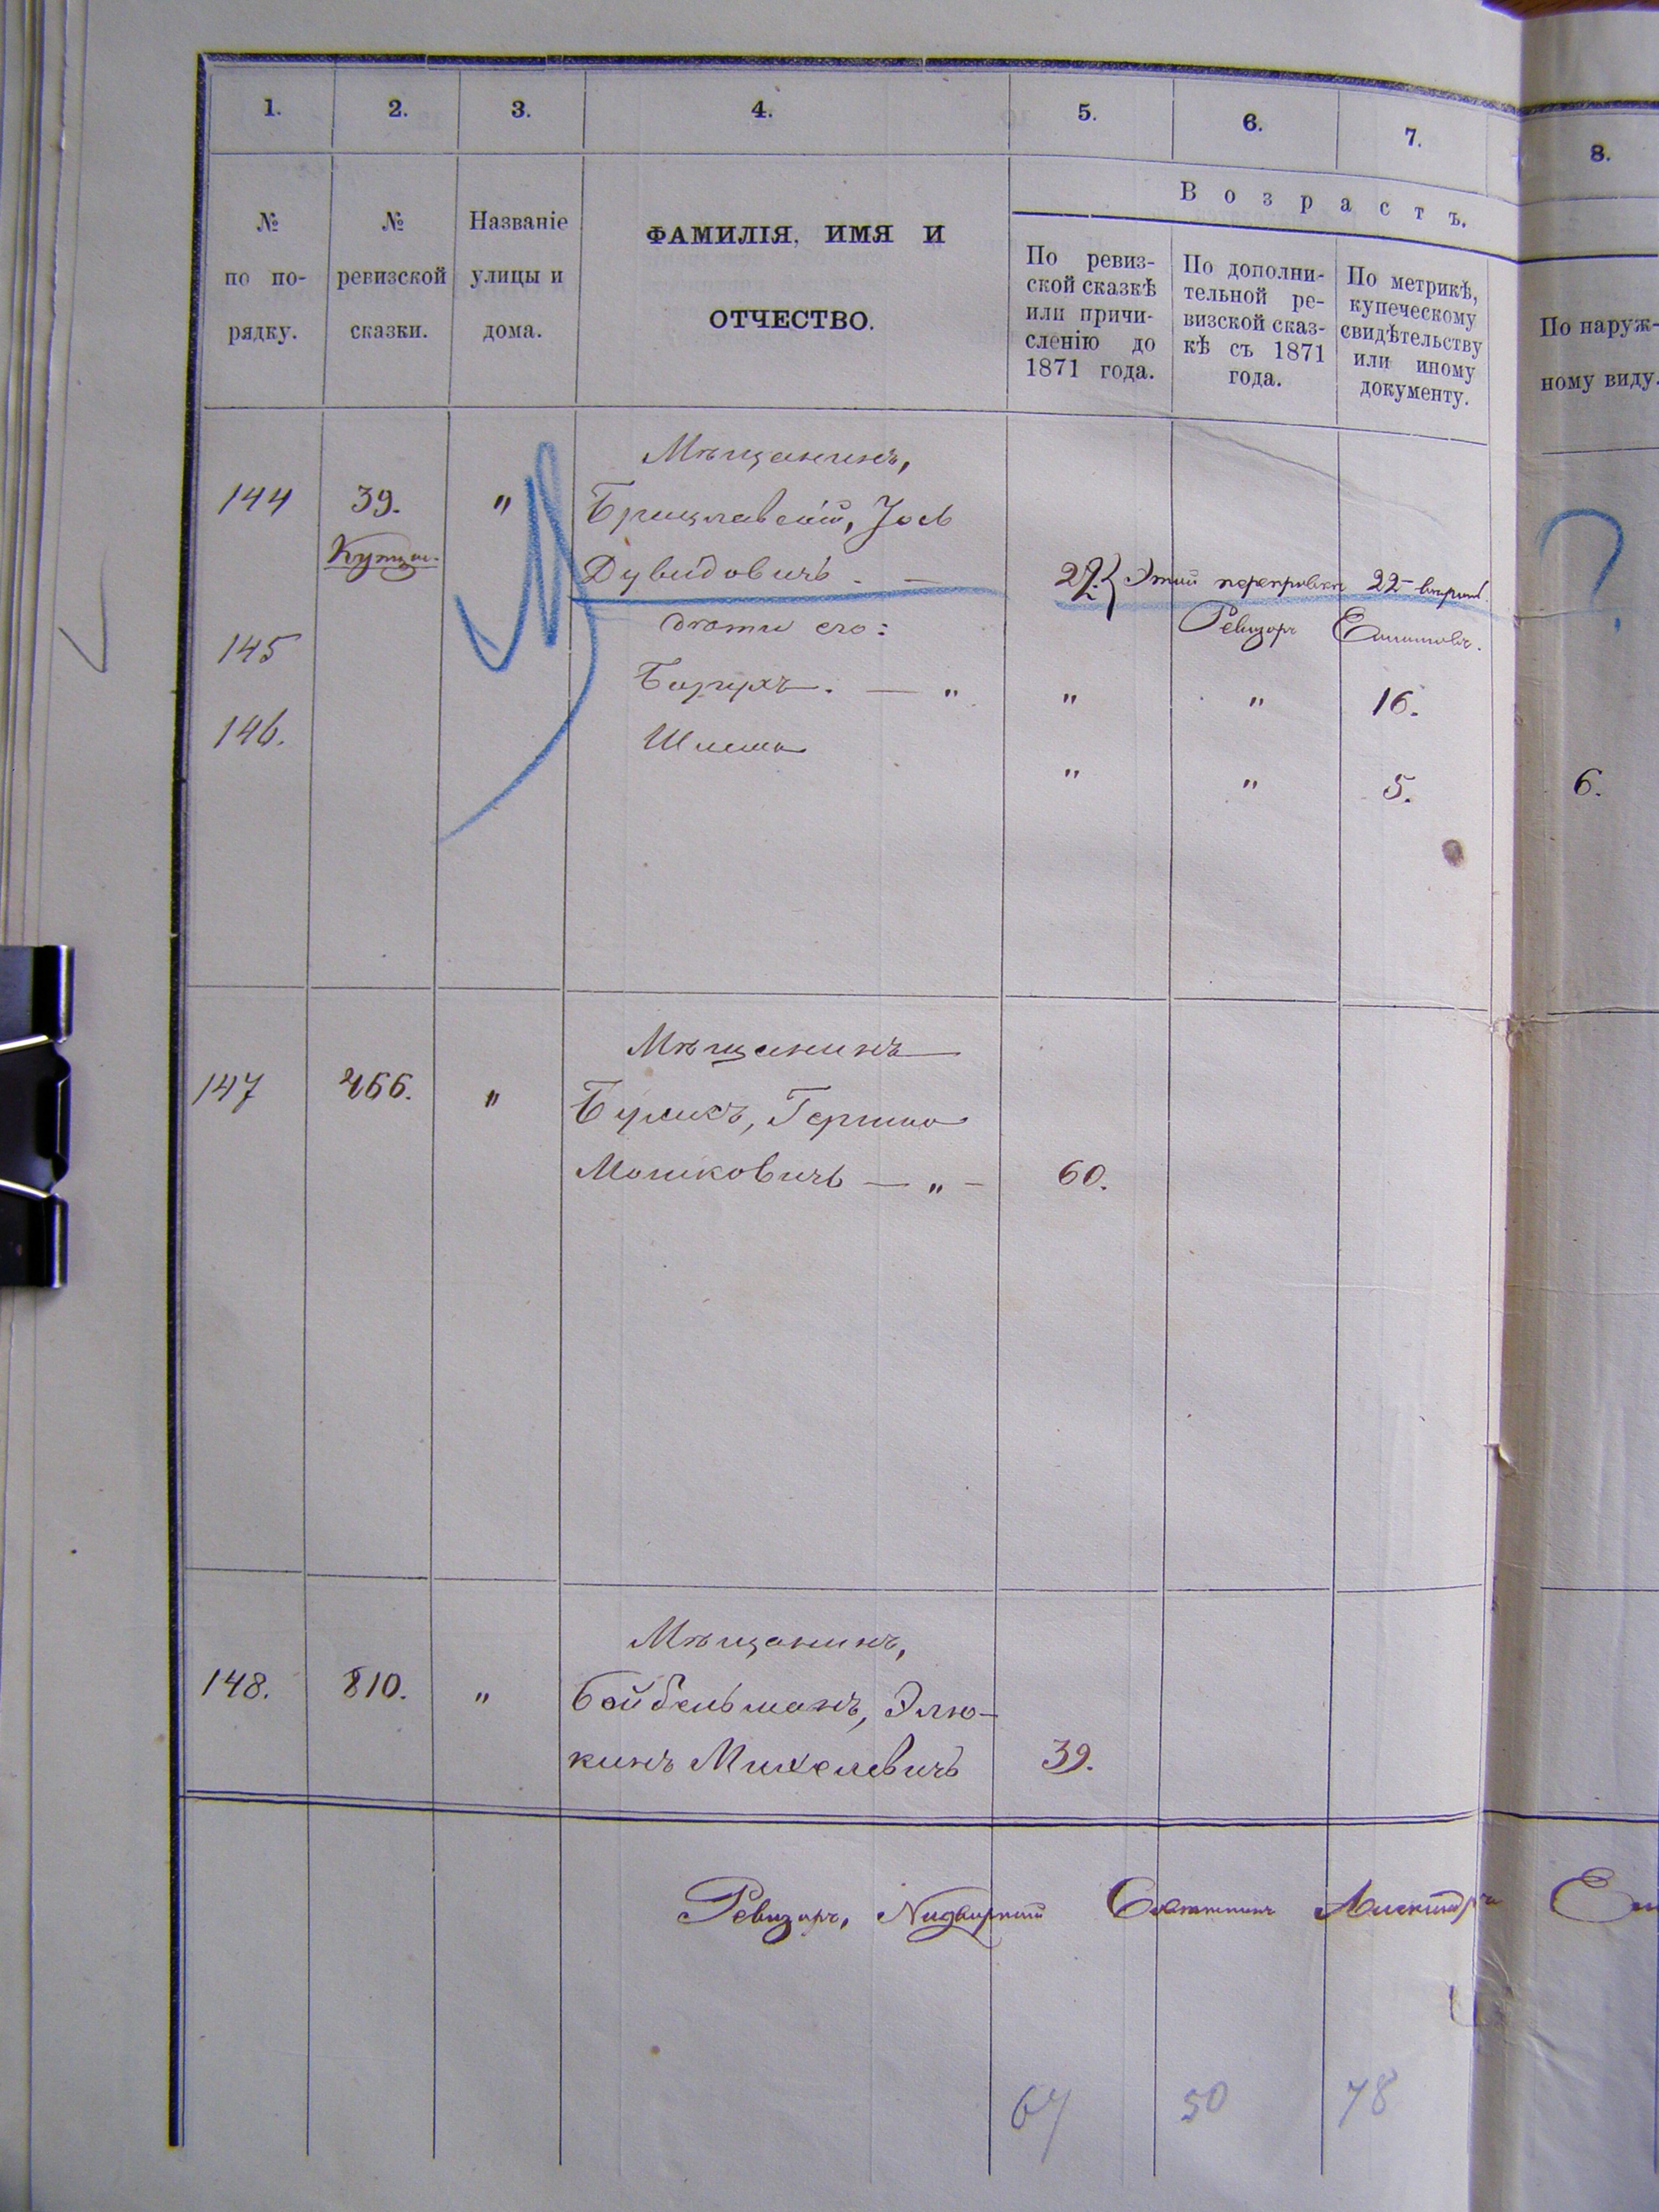 1. 2. 3. 4. 5. 6. 7. 8.
№ по по-рядку.
№ ревизской сказки.
Названіе улицы и дома.
ФАМИЛІЯ, ИМЯ И
ОТЧЕСТВО.
Возрастъ.
По ревиз-
ской сказкѣ
или причи-
сленію до
1871 года.
По дополни-
тельной ре-
визской сказ-
кѣ съ 1871
года.
По метрикѣ,
купеческому
свидѣтельству
или иному
документу.
По наруж-
ному виду.
Мѣщанинъ,
144 39. " Брацлавскій, Іось
Дувидовичъ. — 22
?
дѣти его: Ревизоръ
145 Борухъ. — " " " 16.
146. Шлема " " 5. 6.
Мѣщанинъ
147 266. " Бурикъ, Гершко
Мошковичъ — " — 60.
Мѣщанинъ,
148. 810. " Бойбельманъ, Элю-
кинъ Михелевичъ 39.
Ревизоръ, Надворный Совѣтникъ
64 50 78